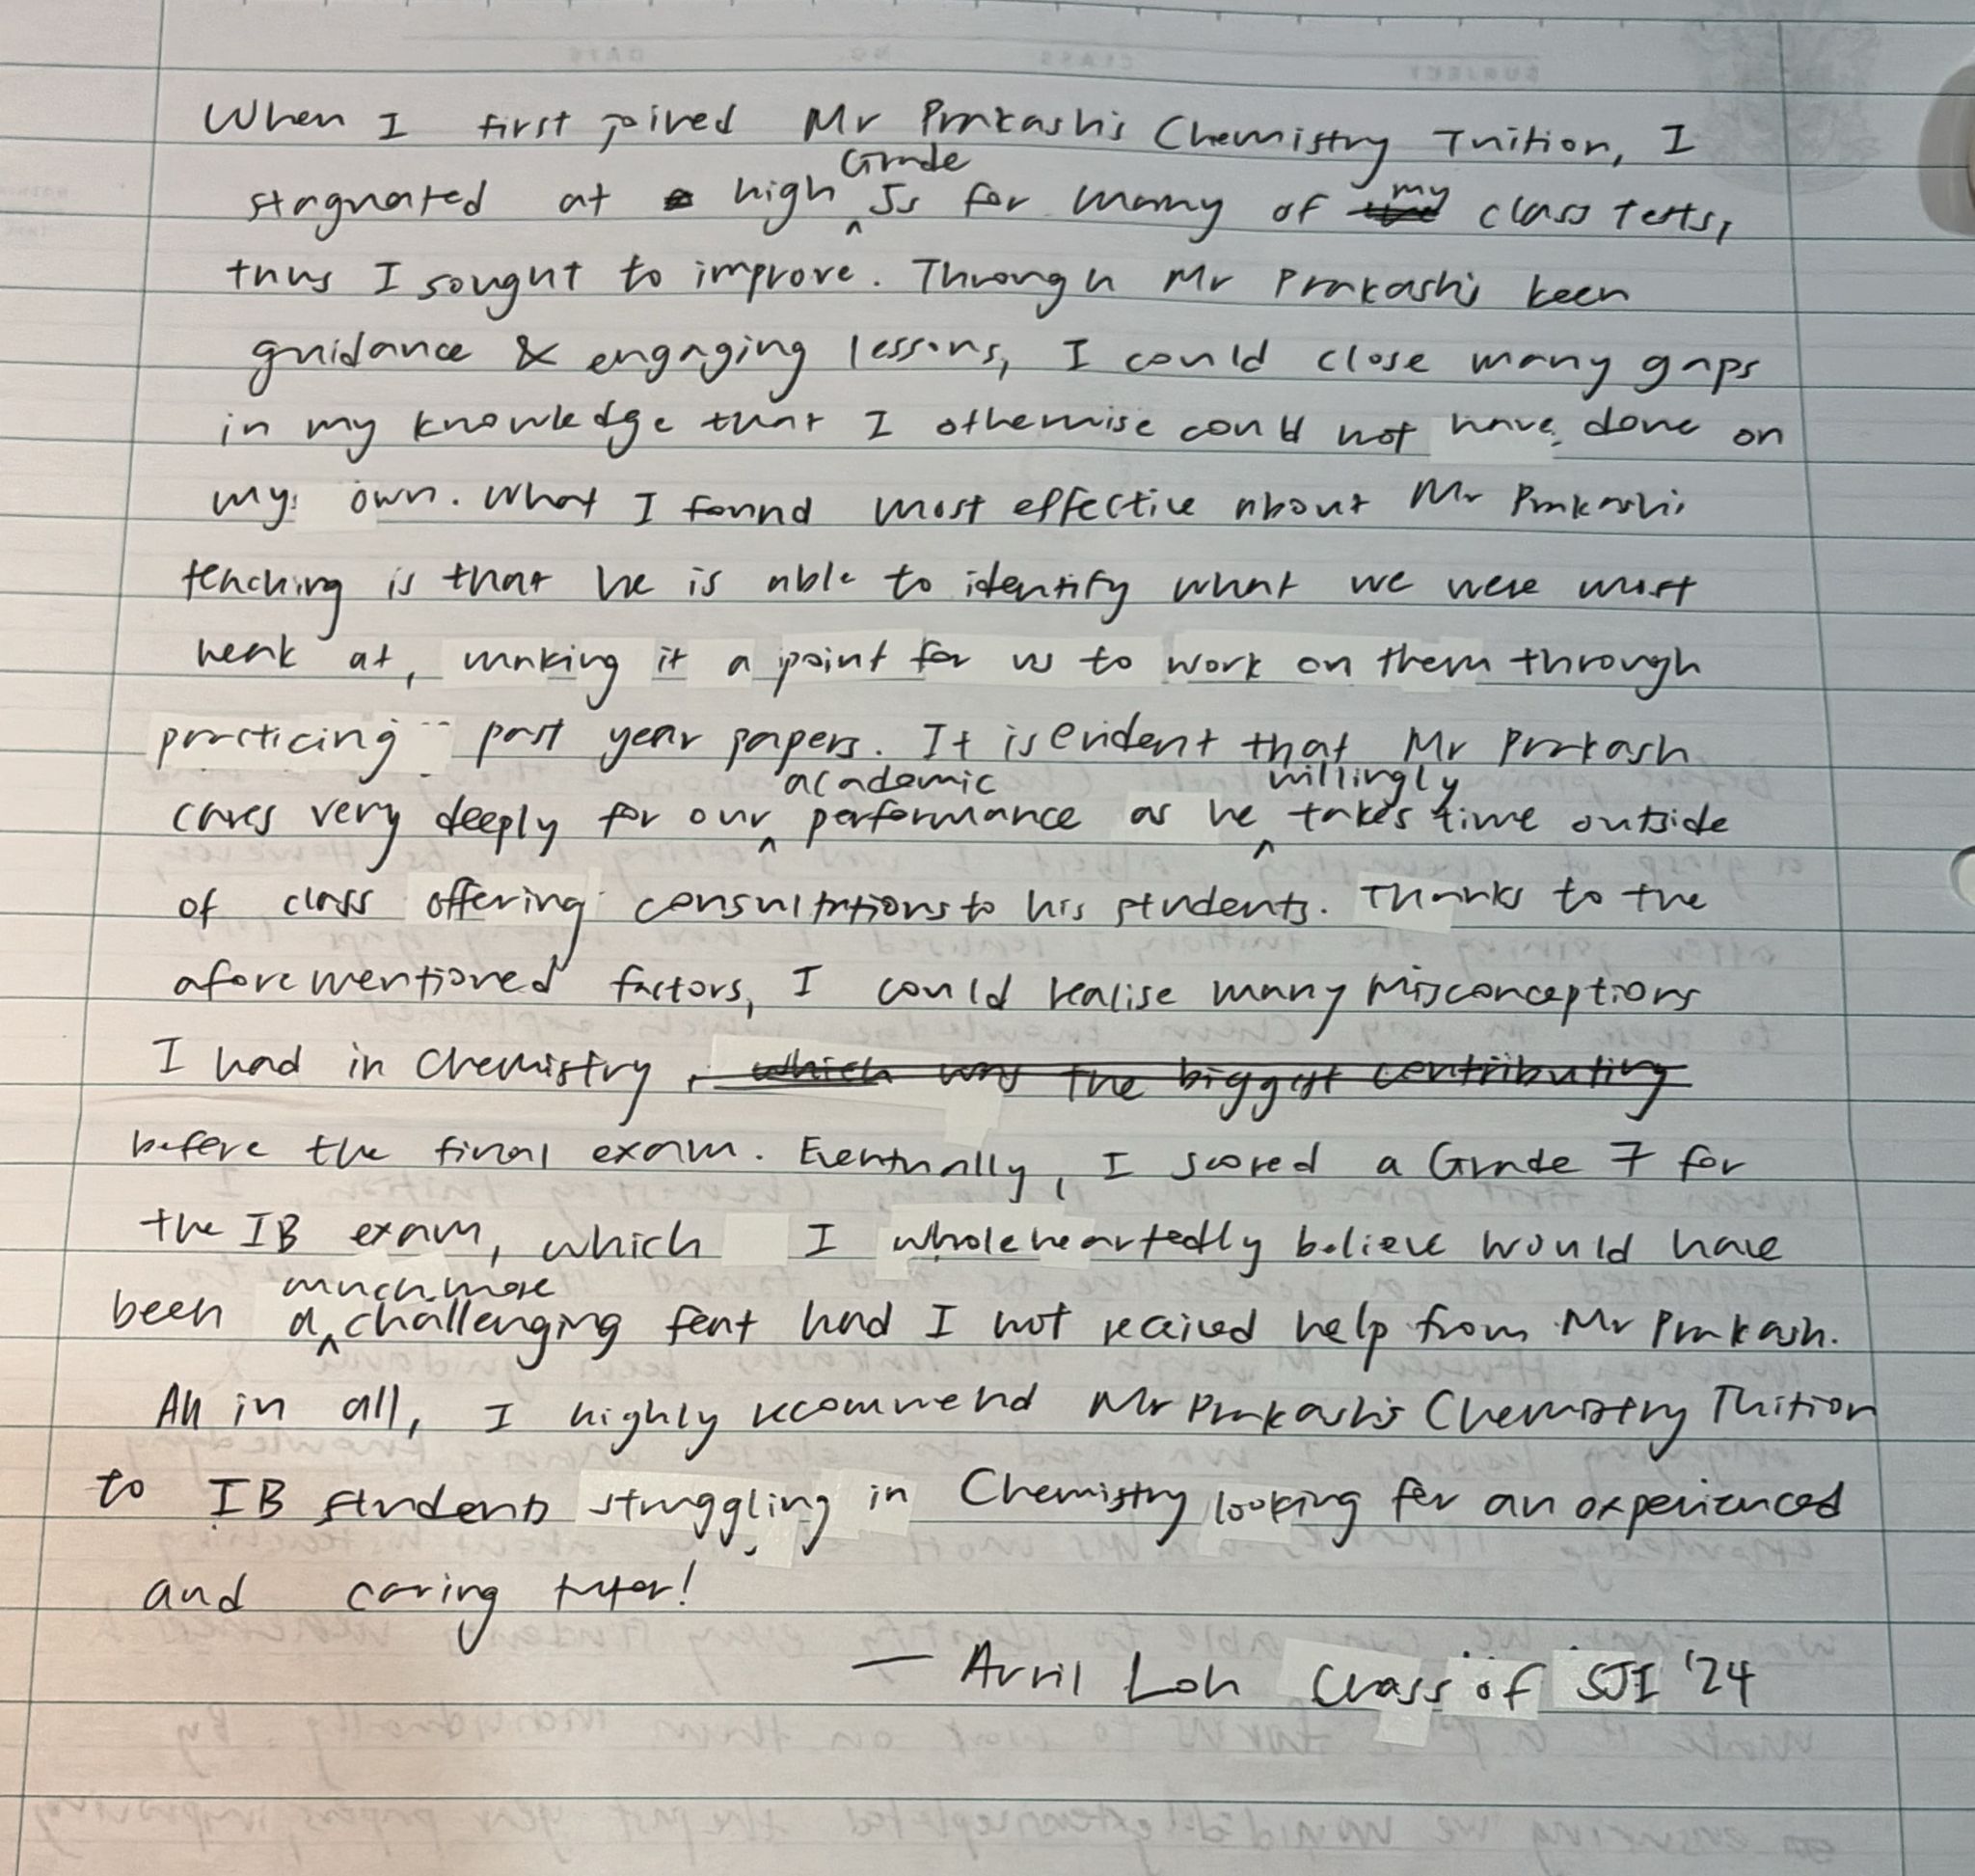 When I first joined Mr Prakash's Chemistry Tuition, I
stagnated at high Grade 5s for many of my class tests,
thus I sought to improve. Through Mr Prakash's keen
guidance & engaging lessons, I could close many gaps
in my knowledge that I otherwise could not have done on
my own. What I found most effective about Mr Prakash's
teaching is that he is able to identify what we were most
weak at, making it a point for us to work on them through
practicing past year papers. It is evident that Mr Prakash
cares very deeply for our academic performance as he willingly takes time outside
of class offering consultations to his students. Thanks to the
aforementioned factors, I could realise many misconceptions
I had in Chemistry, which was the biggest contributing
before the final exam. Eventually, I scored a Grade 7 for
the IB exam, which I wholeheartedly believe would have
been a much more challenging feat had I not received help from Mr Prakash.
All in all, I highly recommend Mr Prakash's Chemistry Tuition
to IB students struggling in Chemistry looking for an experienced
and caring tutor!
— Avril Loh Class of SJI '24